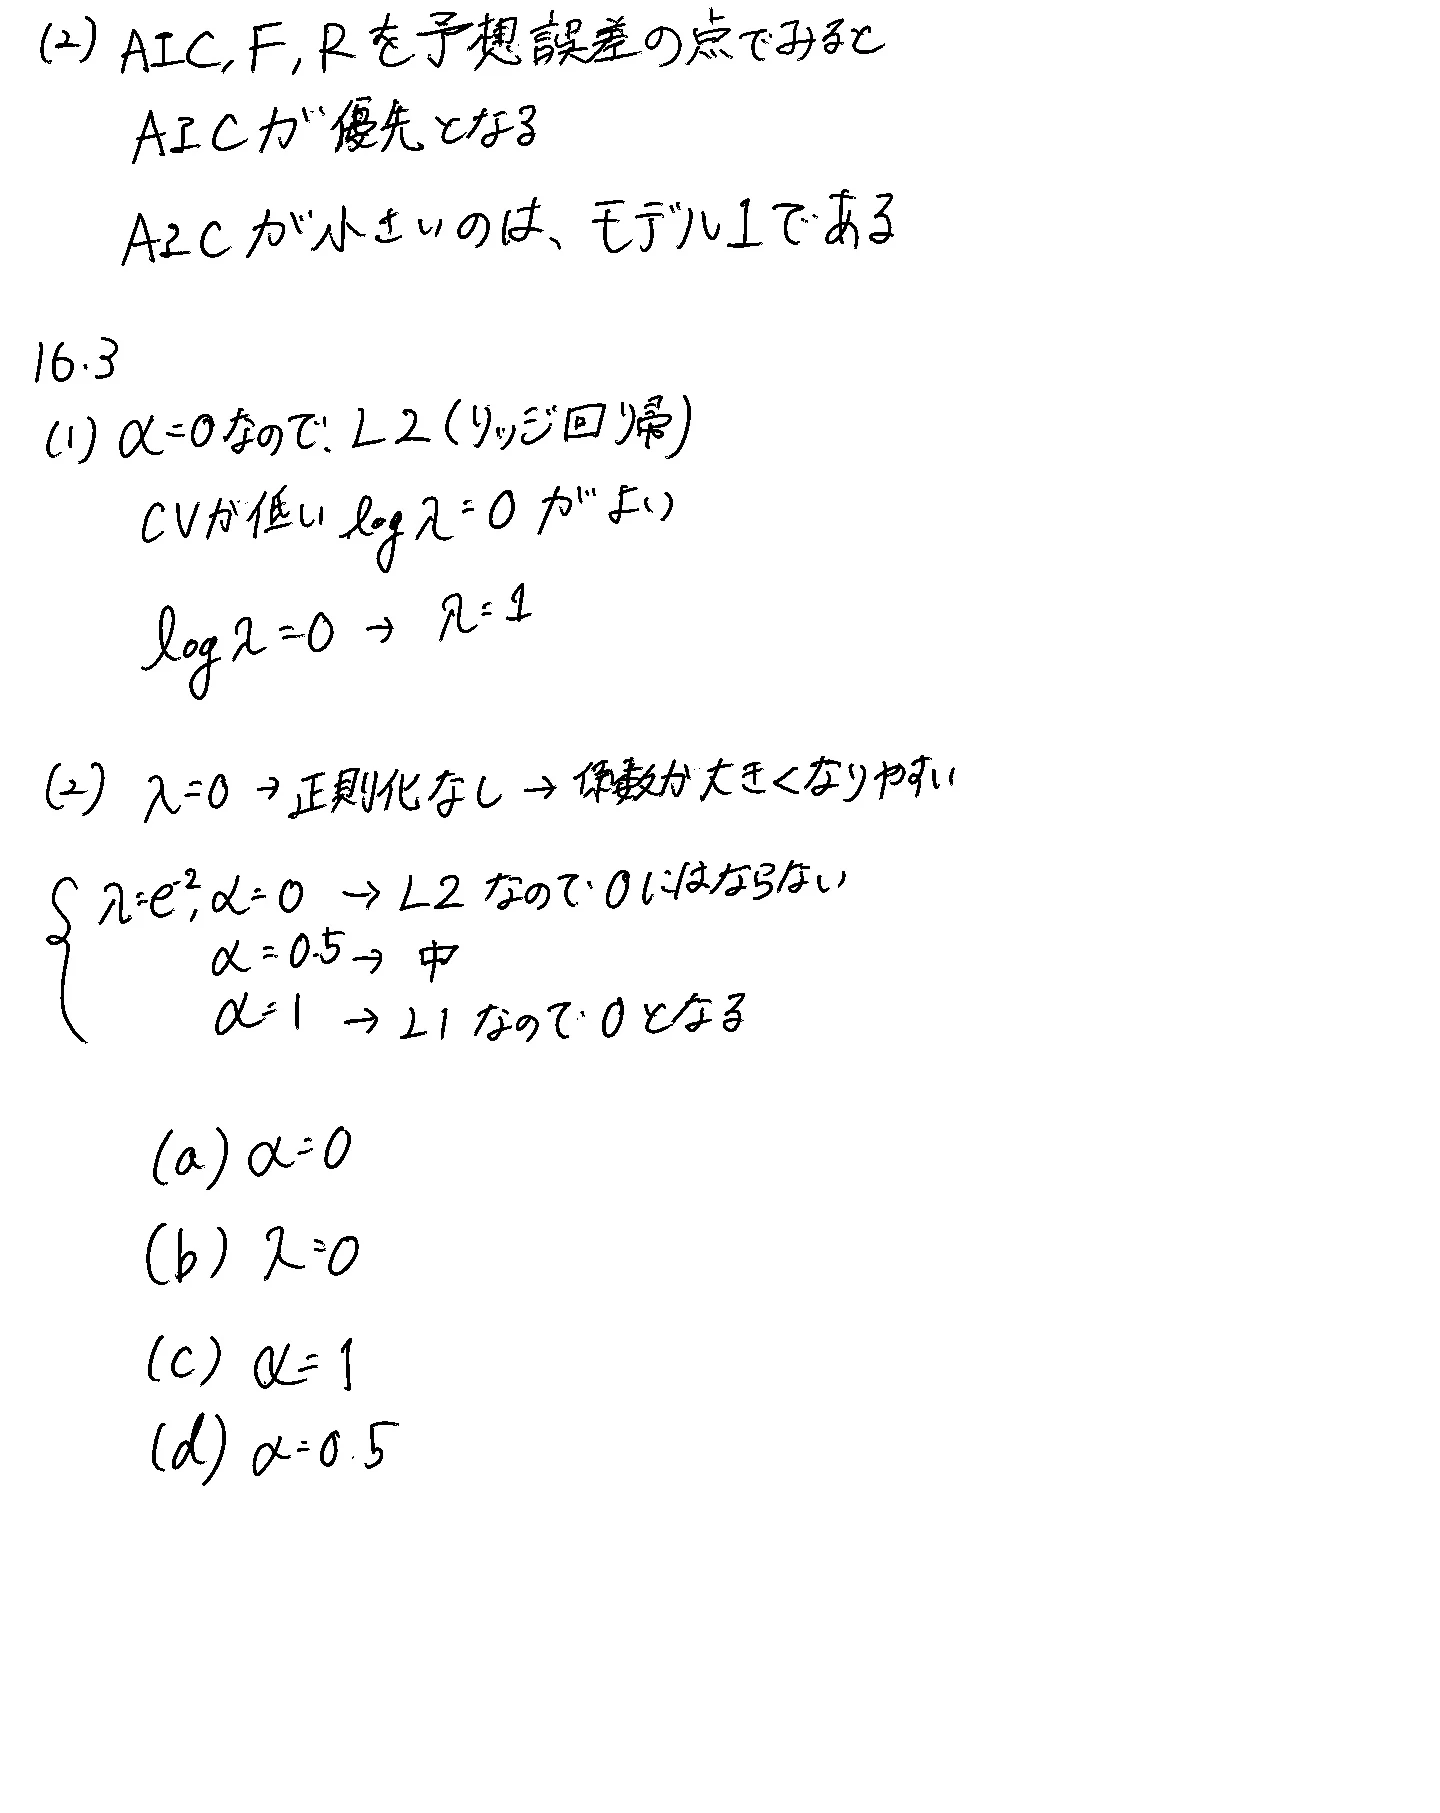 (2) AIC, F, Rを予想誤差の点でみると
AICが優先となる
AICが小さいのは、モデル1である
16.3
(1) α=0なので、L2(リッジ回り帰)
CVが低い logλ=0 がよい
logλ=0 → λ=1
(2) λ=0 → 正則化なし → 係数が大きくなりやすい
λ=e⁻², α=0 → L2 なので 0にはならない
α=0.5 → 中
α=1 → L1 なので 0となる
(a) α=0
(b) λ=0
(c) α=1
(d) α=0.5